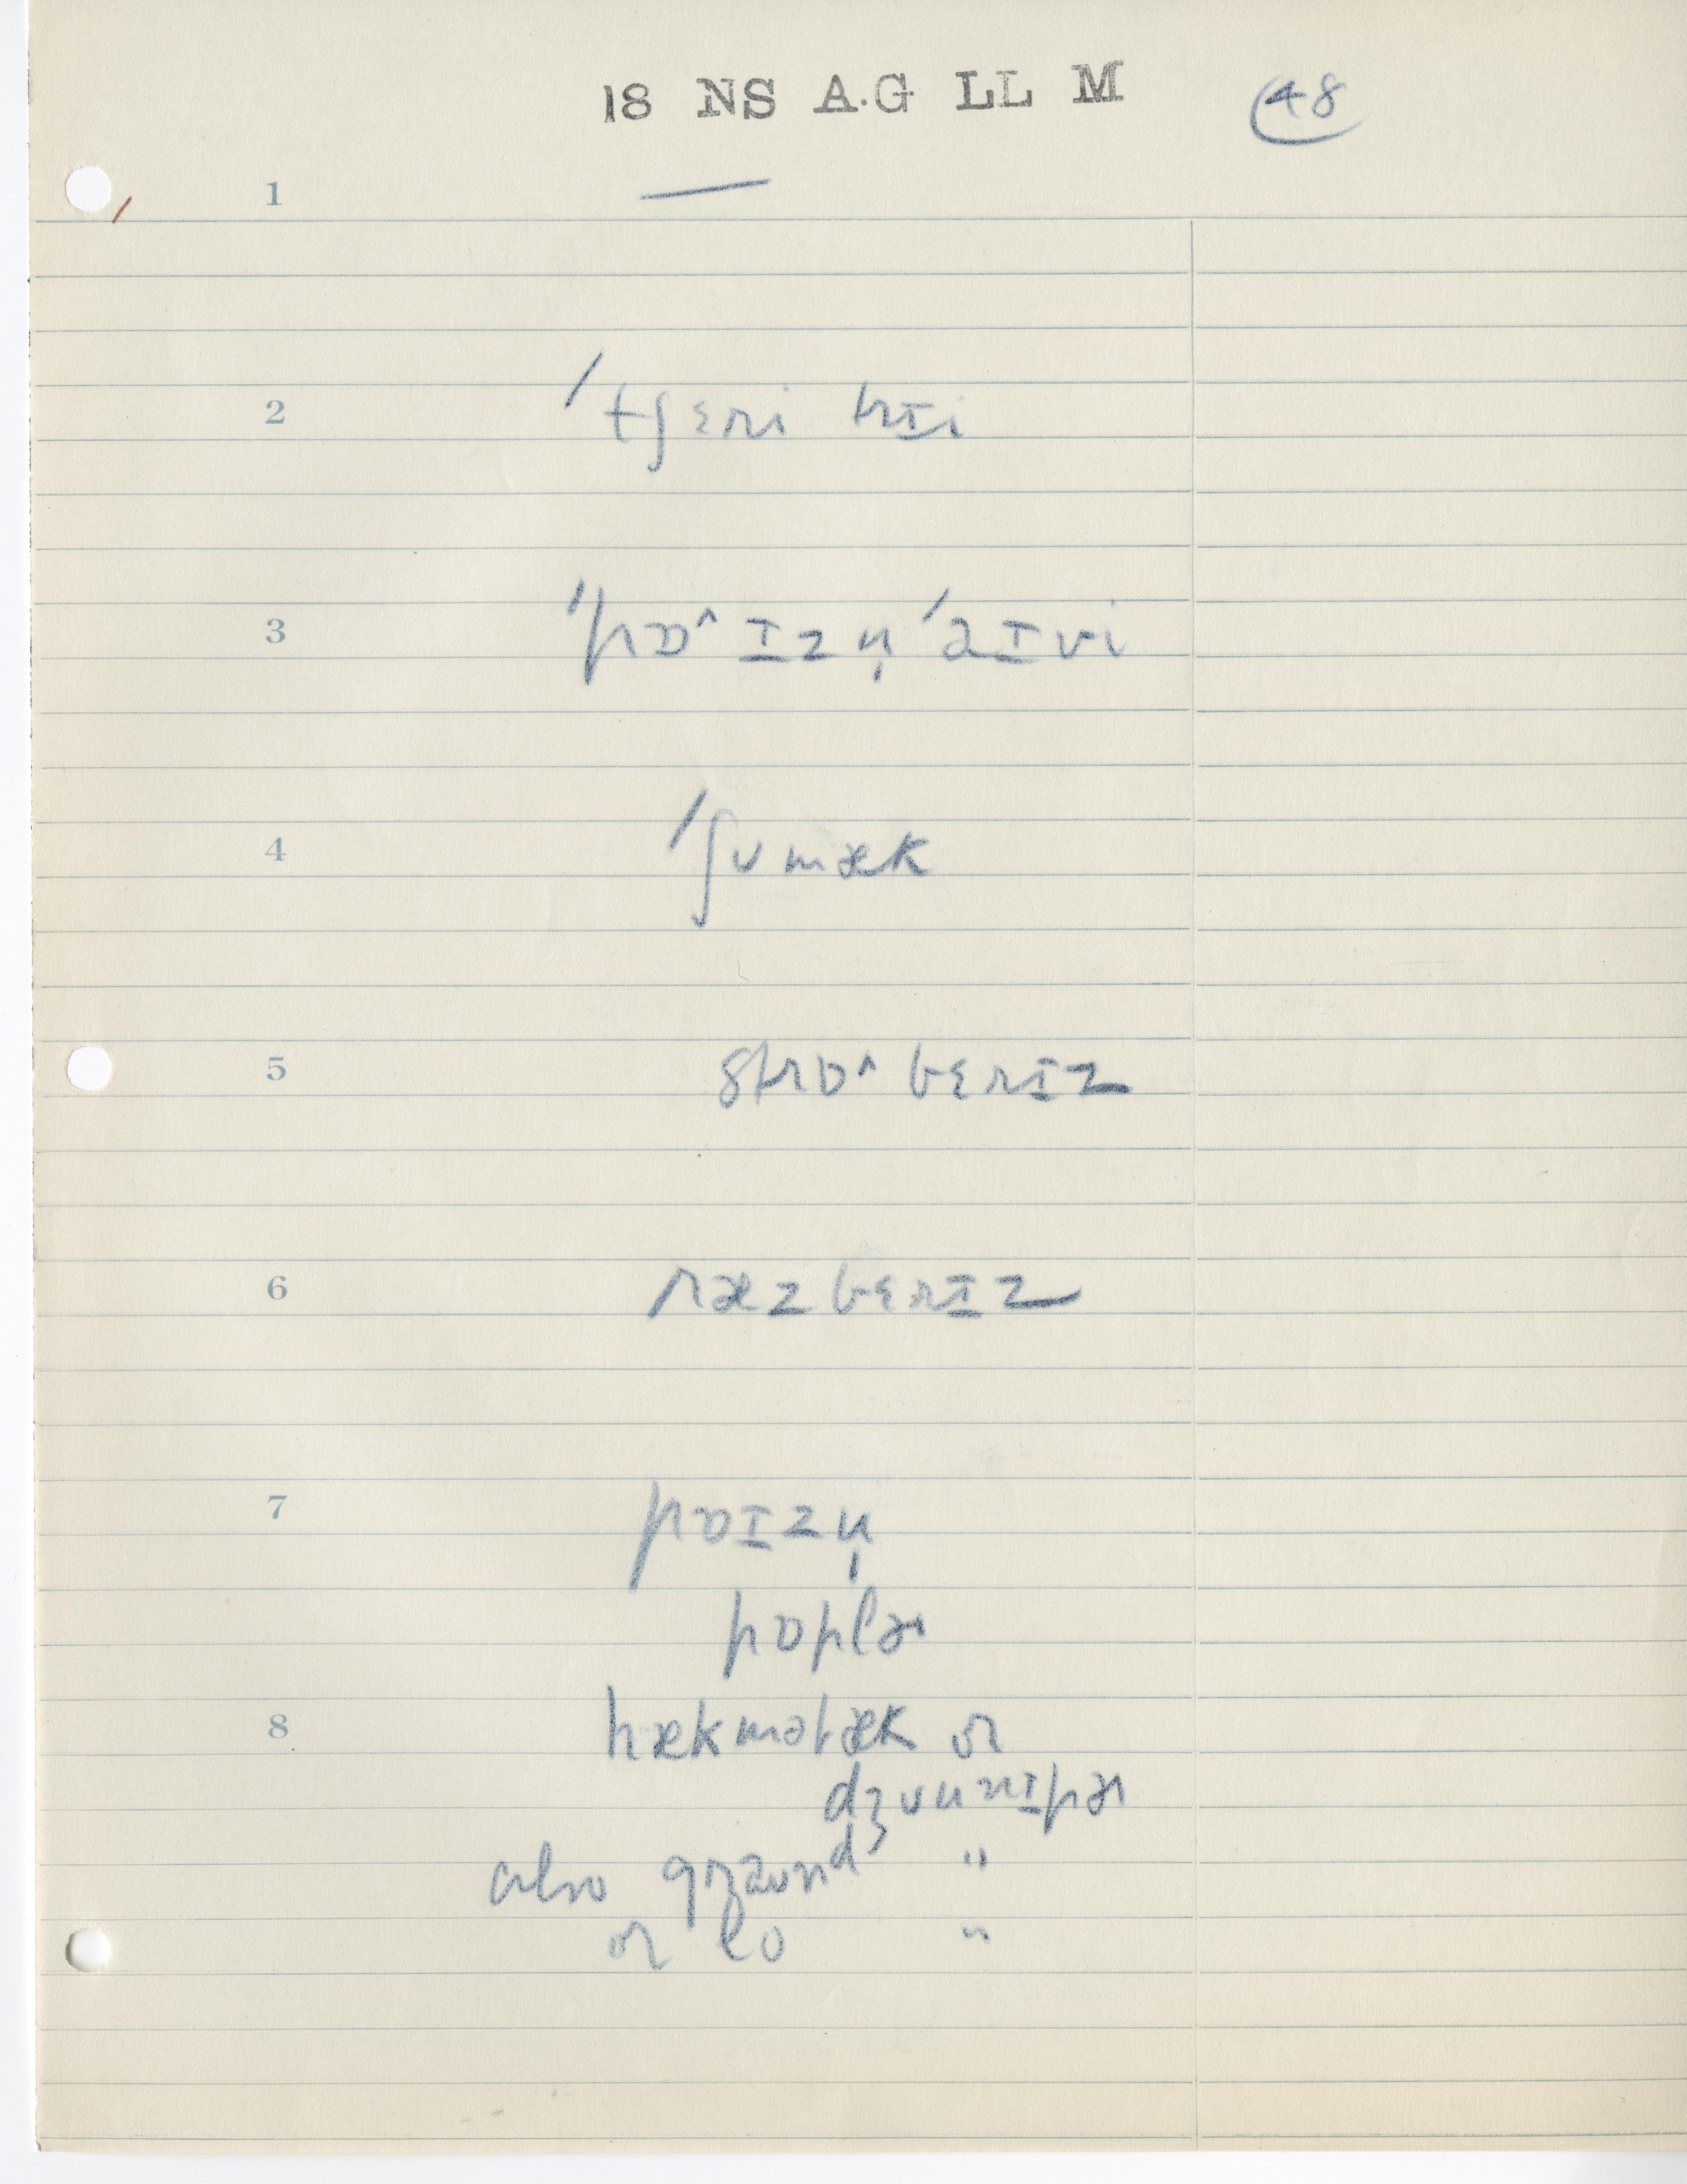 18 NS A.G LL M 48
1 —
2 ˈtʃɛri trɪi
3 ˈpɒ^ɪzn̩ ˈaɪvi
4 ˈʃumæk
5 strɒ^bɛrɪz
6 ræzbɛrɪz
7 pɒɪzn̩
pɒplɚ
8 hækmətæk or
dʒunɪpɚ
also graʊnd "
or lo "